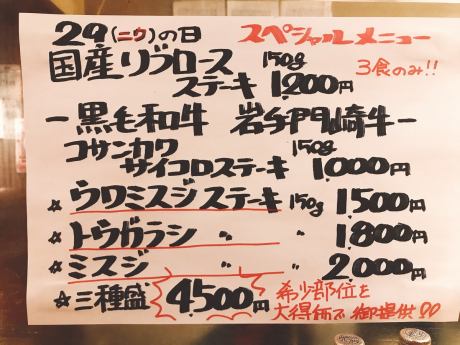 29(ニウ)の日 スペシャルメニュー
国産リブロース 150g 3食のみ!!
ステーキ 1,200円
ー黒毛和牛 岩手門崎牛ー
コサンカワ 150g
サイコロステーキ 1,000円
☆ウワミスジステーキ 150g 1,500円
☆トウガラシ 〃 〃 1,800円
☆ミスジ 〃 〃 2,000円
☆三種盛 4,500円 希少部位を
大得価で御提供!!